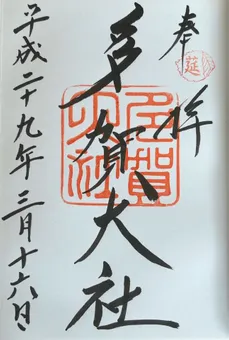 奉拝
延
多賀大社
多賀大社
平成二十九年三月十六日